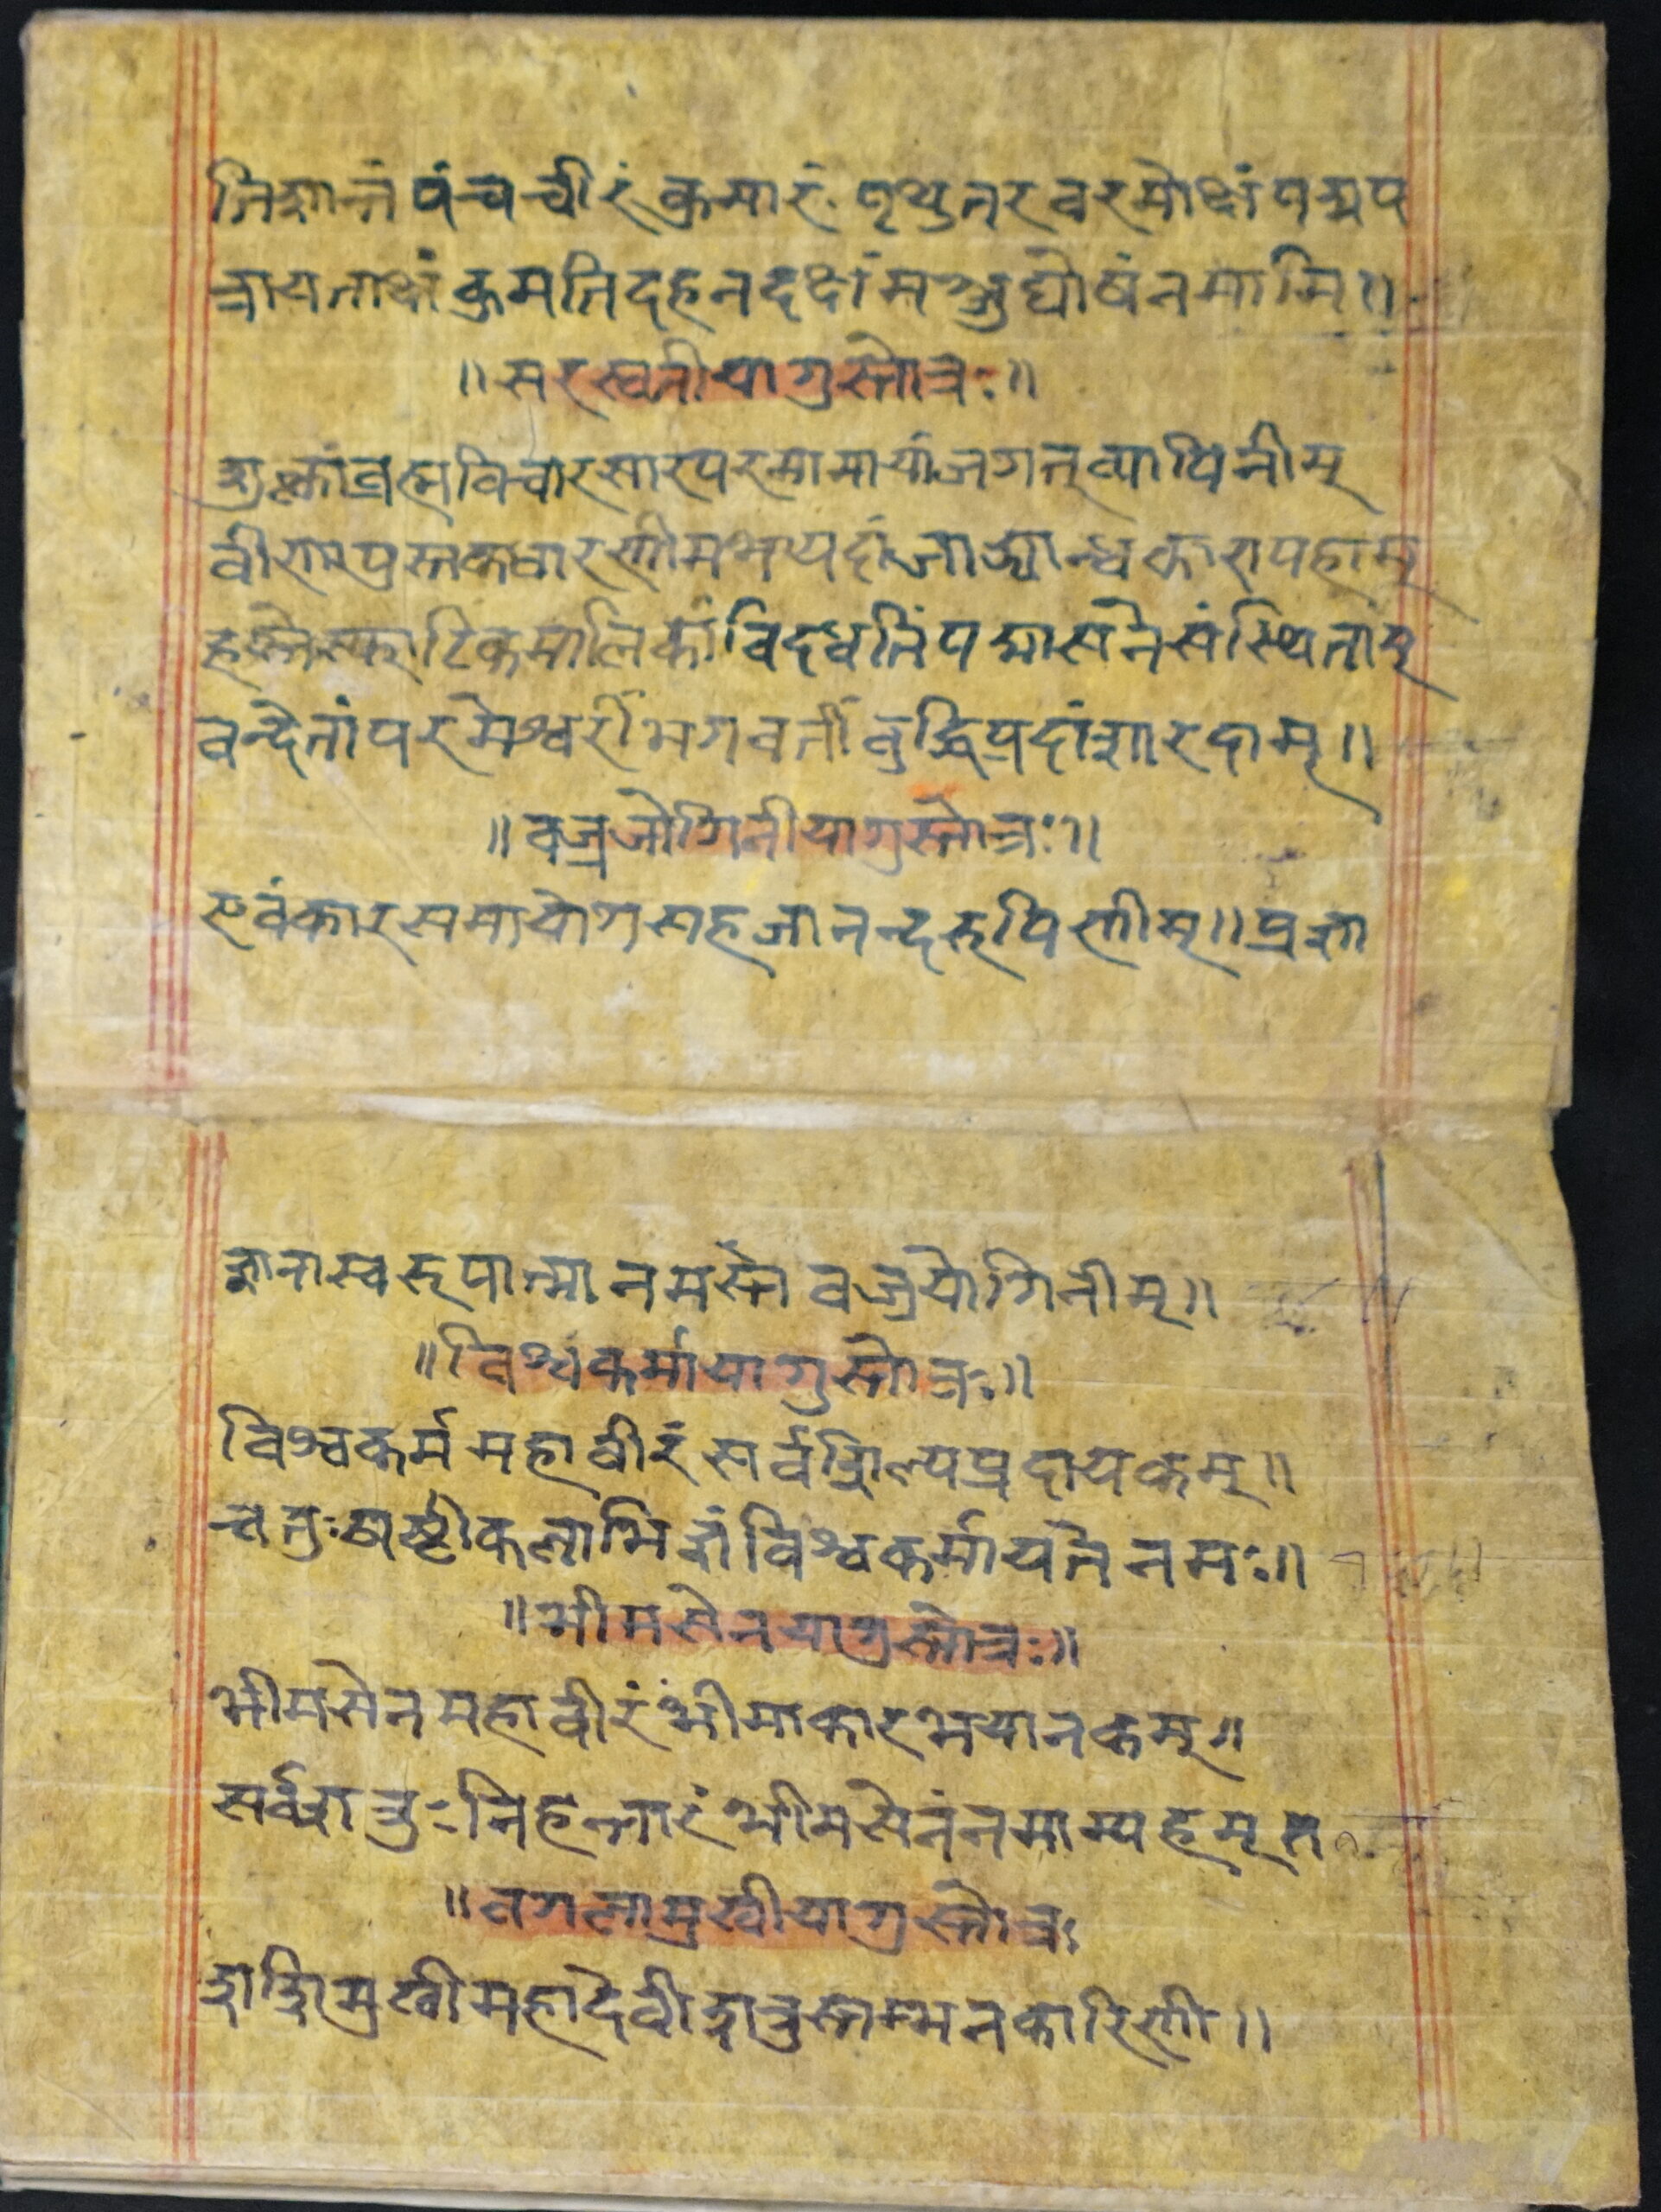 निशान्तं पंचचीरं कुमारं पृथुतरवरमोक्षं पद्मप
त्रायताक्षं कुमतिदहनदक्षं मञ्जुघोषं नमामि॥
॥सरस्वतीयागुस्तोत्रः॥
शुक्लांब्रह्मविचारसारपरमामायांजगत्व्यापिनीम्
वीणापुस्तकधारणीमभयदांजाड्यान्धकारापहाम्
हस्तेस्फाटिकमालिकांविदधतिंपद्मासनेसंस्थिताम्
वन्देतांपरमेश्वरींभगवतींवुद्धिप्रदांशारदाम्॥
॥वज्रजोगिनीयागुस्तोत्रः॥
एवंकारसमायोगसहजानन्दरूपिणीम्॥प्रज्ञा
ज्ञानास्वरूपात्मानमस्ते वज्रयोगिनीम्॥
॥विश्वकर्मायागुस्तोत्रः॥
विश्वकर्ममहावीरंसर्वशिल्पप्रदायकम्॥
चतुःषष्टीकलाभिज्ञंविश्वकर्मायतेनमः॥
॥भीमसेनयागुस्तोत्रः॥
भीमसेनमहावीरंभीमाकारभयानकम्॥
सर्वशत्रुःनिहन्तारंभीमसेनंनमाम्यहम्॥
॥वगलामुखीयागुस्तोत्रः
शशिमुखीमहादेवीशत्रुस्तम्भनकारिणी॥